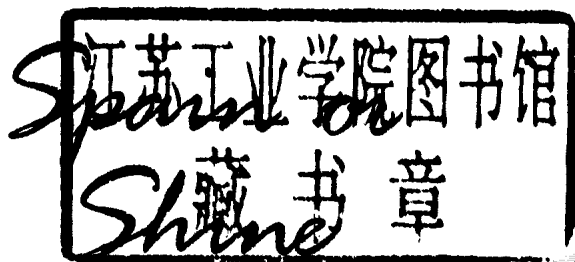 江苏工业学院图书馆
藏书章
Spawn on
Shine